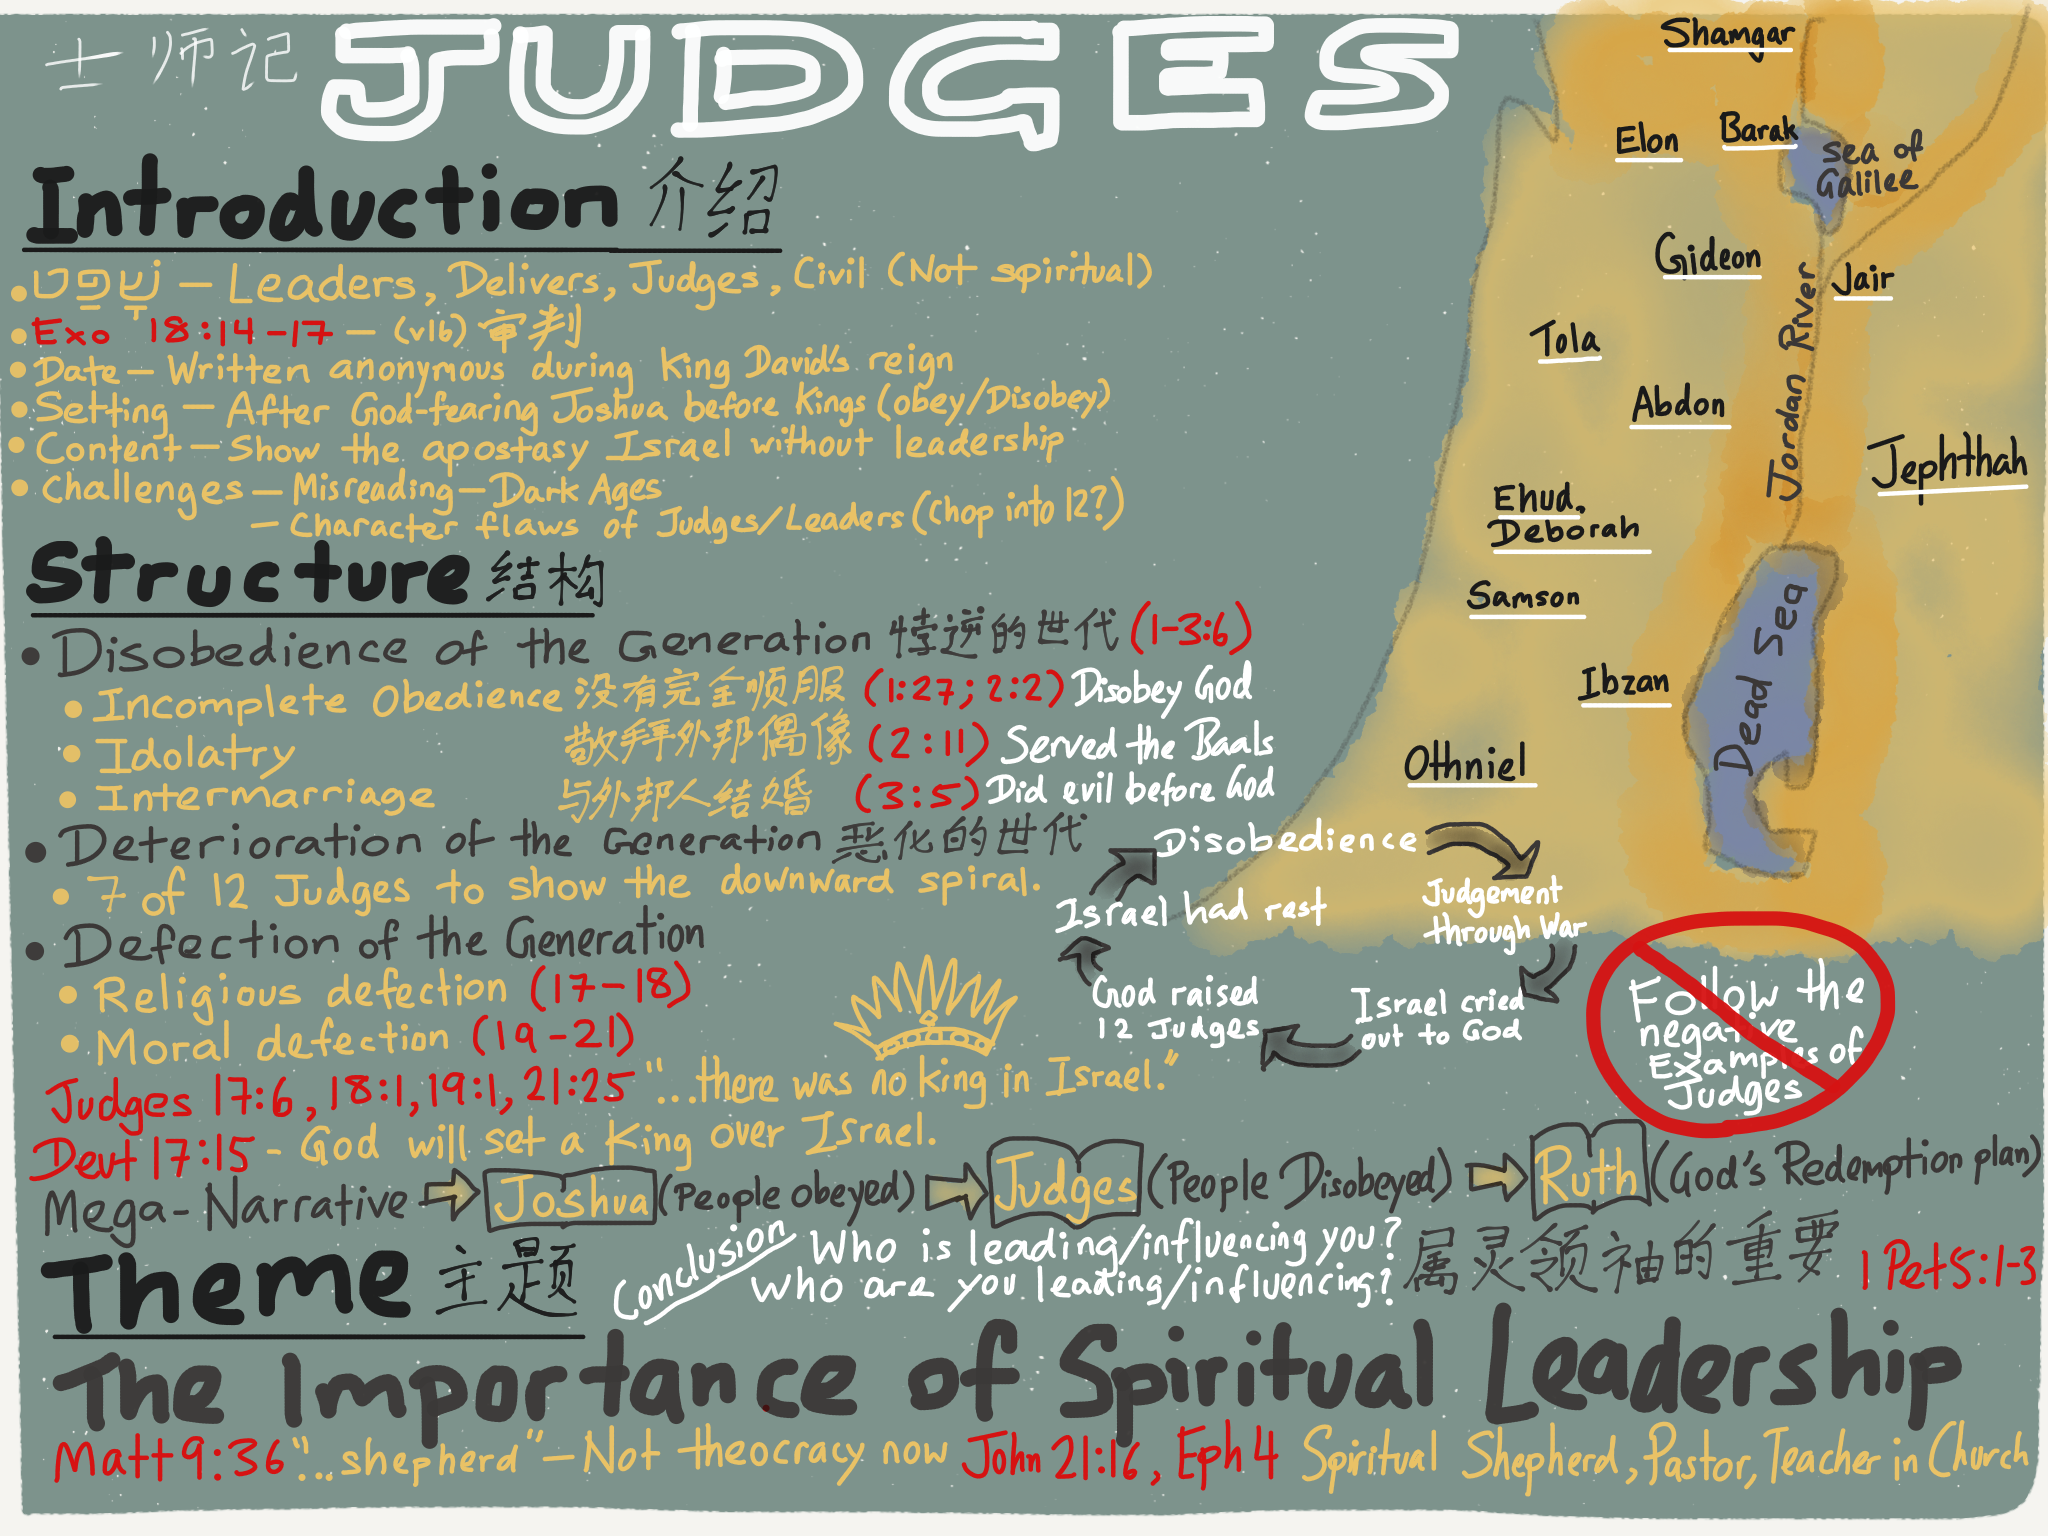 士师记 JUDGES
Introduction 介绍
• שָׁפַט – Leaders, Delivers, Judges, Civil (Not spiritual)
• Exo 18:14-17 – (v16) 审判
• Date – Written anonymous during King David's reign
• Setting – After God-fearing Joshua before Kings (obey/Disobey)
• Content – Show the apostasy Israel without leadership
• Challenges – Misreading – Dark Ages
– Character flaws of Judges/Leaders (chop into 12?)
Structure 结构
• Disobedience of the Generation 悖逆的世代 (1-3:6)
• Incomplete Obedience 没有完全顺服 (1:27; 2:2) Disobey God
• Idolatry 敬拜外邦偶像 (2:11) Served the Baals
• Intermarriage 与外邦人结婚 (3:5) Did evil before God
• Deterioration of the Generation 恶化的世代
• 7 of 12 Judges to show the downward spiral.
• Defection of the Generation
• Religious defection (17-18)
• Moral defection (19-21)
Judges 17:6, 18:1, 19:1, 21:25 "...there was no king in Israel."
Deut 17:15 - God will set a King over Israel.
Disobedience
Judgement
through War
Israel cried
out to God
God raised
12 Judges
Israel had rest
Shamgar
Elon
Barak
Sea of
Galilee
Gideon
Jair
Jordan River
Tola
Abdon
Jephthah
Ehud,
Deborah
Samson
Ibzan
Dead Sea
Othniel
Follow the
negative
Examples of
Judges
Mega-Narrative Joshua (People obeyed) Judges (People Disobeyed) Ruth (God's Redemption plan)
Theme 主题
Conclusion Who is leading/influencing you?
Who are you leading/influencing?
属灵领袖的重要 1 Pet 5:1-3
The Importance of Spiritual Leadership
Matt 9:36 "...shepherd" – Not theocracy now John 21:16, Eph 4 Spiritual Shepherd, Pastor, Teacher in Church